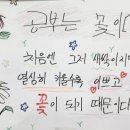 공부는 꽃이다
처음엔 그저 새싹이지만
열심히 키울수록 이쁘고
꽃이 되기 때문이다